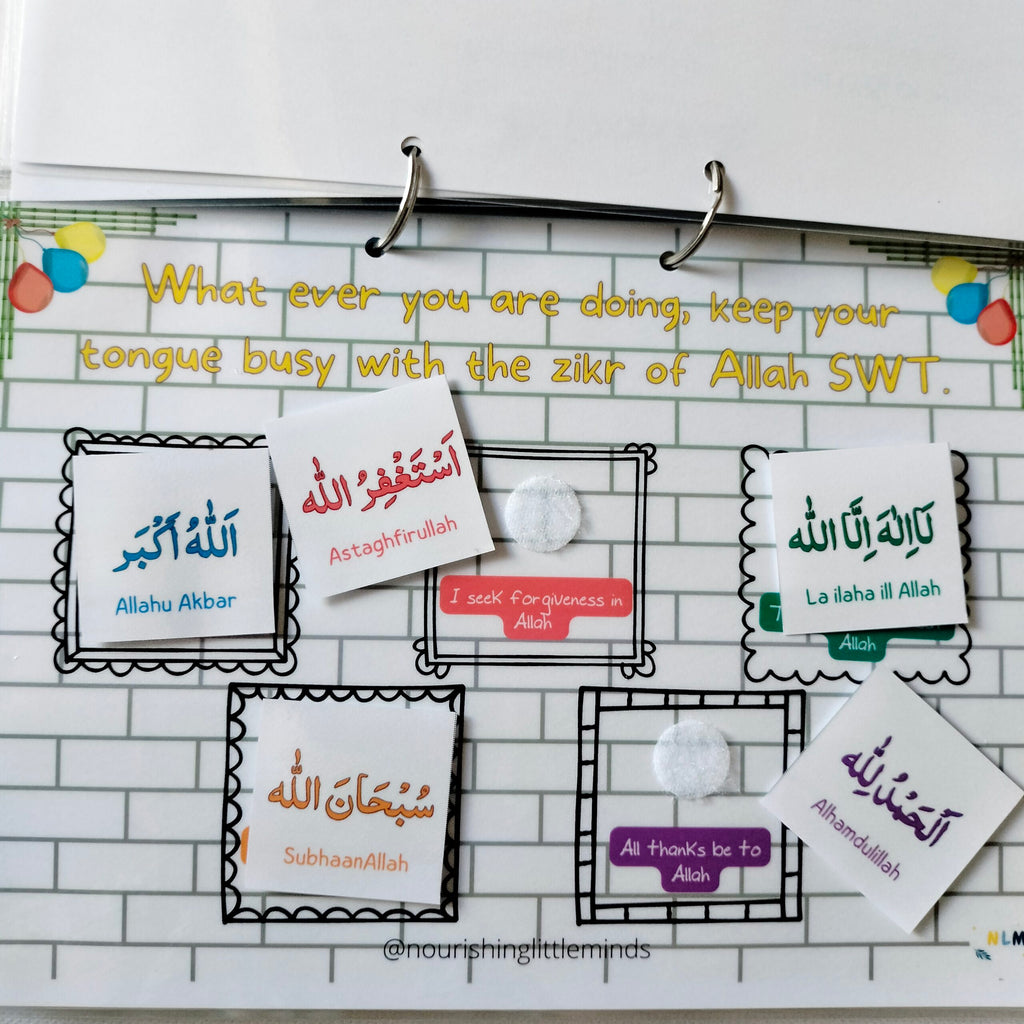 What ever you are doing, keep your
tongue busy with the zikr of Allah SWT.
اَللّٰهُ أَكْبَر
Allahu Akbar
اَسْتَغْفِرُ اللّٰه
Astaghfirullah
I seek forgiveness in
Allah
لَآ اِلٰهَ اِلَّا اللّٰه
La ilaha ill Allah
Allah
سُبْحَانَ اللّٰه
SubhaanAllah
All thanks be to
Allah
اَلْحَمْدُ لِلّٰه
Alhamdulillah
@nourishinglittleminds
NLM